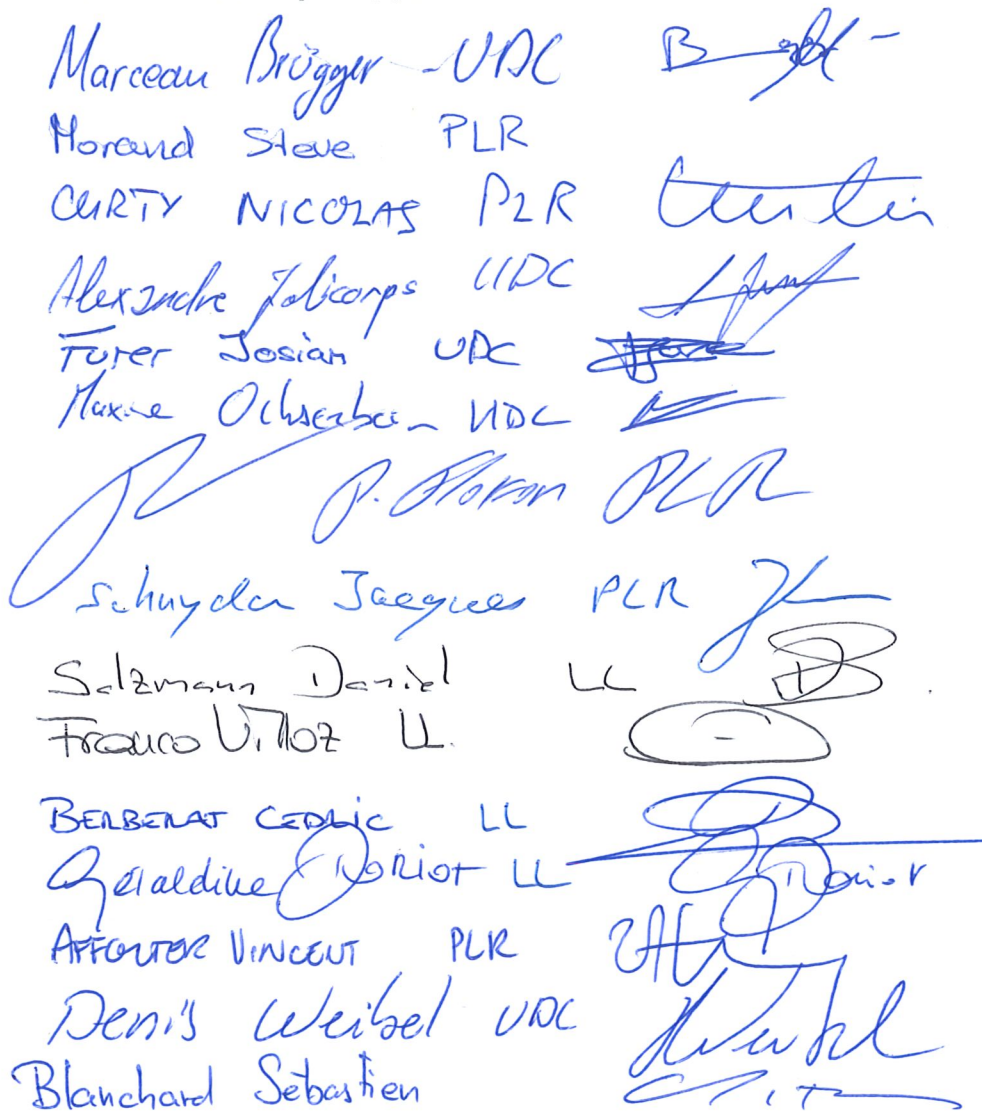 Marceau Brügger - UDC
Morand Steve PLR
CURTY NICOLAS PLR
Alexandre Jolicorps UDC
Furer Josian UDC
Maxime Ochsenbein UDC
P. Floron PLR
Schnyder Jacques PLR
Salzmann Daniel LL
Franco Villoz LL.
BERBERAT CEDRIC LL
Géraldine Doriot LL Doriot
AFFOLTER VINCENT PLR
Denis Weibel UDC
Blanchard Sébastien